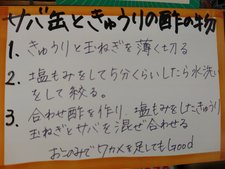 サバ缶ときゅうりの酢の物
1. きゅうりと玉ねぎを薄く切る
2. 塩もみをして5分くらいしたら水洗い
をして絞る。
3. 合わせ酢を作り 塩もみしたきゅうり
玉ねぎとサバを混ぜ合わせる
おこのみでワカメを足してもGood